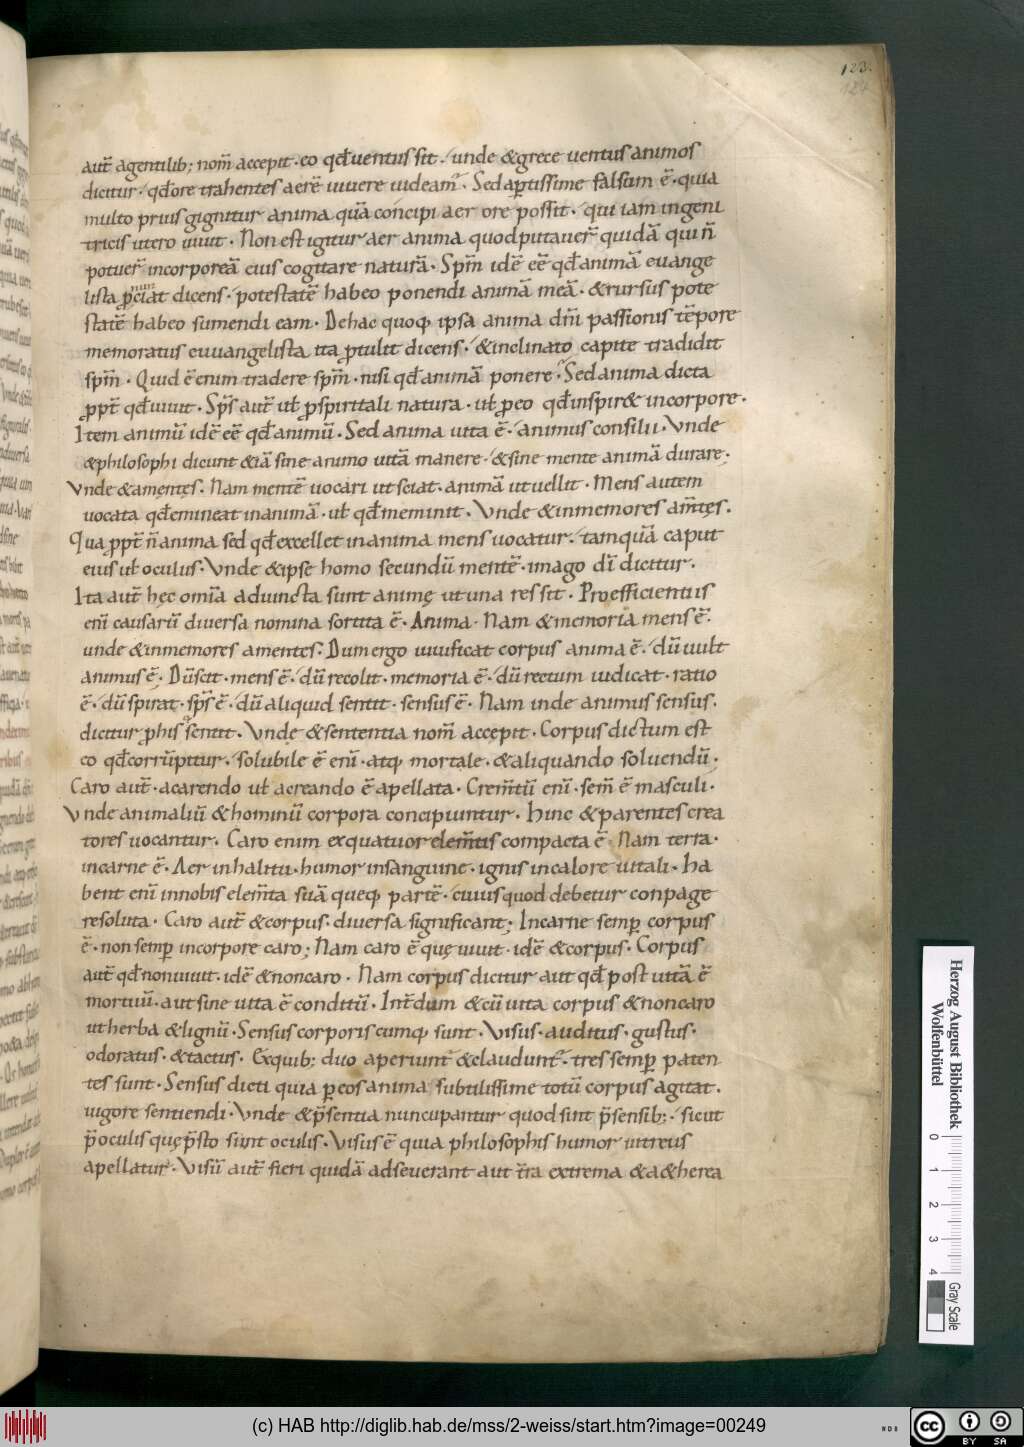 123.
124
aut̄ agentilib; nom̄ accepit · eo qđ uentus sit · unde & grece uentus animos
dicitur · qđ ore trahentes aerē uiuere uideam̄ · Sed aptissime falsum ē · quia
multo prius gignitur anima quā concipi aer ore possit · qui iam in geni
tricis utero uiuit · Non est igitur aer anima quod putauer̄ quidā qui n̄
potuer̄ incorporeā eius cogitare naturā · Spm̄ idē eē qđ animā euange
lista p̄nunciat dicens · potestatē habeo ponendi animā meā · & rursus pote
statē habeo sumendi eam · De hac quoq; ipsa anima dn̄i passionis tēpore
memoratus euuangelista ita ptulit dicens · & inclinato capite tradidit
spm̄ · Quid ē enim tradere spm̄ · nisi qđ animā ponere · Sed anima dicta
ppt̄ qđ uiuit · Sp̄s aut̄ ut pspiritali natura · ut p eo qđ inspir& in corpore ·
Item animū idē eē qđ animū · Sed anima uita ē · animus consilii · Vnde
& philosophi dicunt & iā sine animo uitā manere · & sine mente animā durare ·
Vnde & amentes · Nam mentē uocari ut sciat · animā ut uellit · Mens autem
uocata qđ emineat in animā · ut qđ meminit · Vnde & inmemores am̄tes ·
Qua ppt̄ n̄ anima sed qđ excellet in anima mens uocatur · tamquā caput
eius ut oculus · Vnde & ipse homo secundū mentē · imago dī dicitur ·
Ita aut̄ hęc omīa adiuncta sunt animę ut una res sit · Pro efficientiis
enī causarū diuersa nomina sortita ē · Anima · Nam & memoria mens ē ·
unde & inmemores amentes · Dum ergo uiuificat corpus anima ē · dū uult
animus ē · Dū scit · mens ē · dū recolit · memoria ē · dū rectum iudicat · ratio
ē · dū spirat · sp̄s ē · dū aliquid sentit · sensus ē · Nam inde animus sensus ·
dicitur p his sentit · Vnde & sententia nom̄ accepit · Corpus dictum est
eo qđ corrūpitur · solubile ē enī · atq; mortale · & aliquando soluendū ·
Caro aut̄ · a carendo ut a creando ē apellata · Crem̄tū enī · sem̄ ē masculi ·
Vnde animaliū & hominū corpora concipiuntur · Hinc & parentes crea
tores uocantur · Caro enim ex quatuor elem̄tis compacta ē · Nam terra ·
in carne ē · Aer in halitu · humor in sanguine · ignis in calore uitali · Ha
bent enī in nobis elem̄ta suā queq; partē · cuius quod debetur conpage
resoluta · Caro aut̄ & corpus · diuersa significant; In carne semp corpus
ē · non semp in corpore caro; Nam caro ē quę uiuit · idē & corpus · Corpus
aut̄ qđ non uiuit · idē & non caro · Nam corpus dicitur aut qđ post uitā ē
mortuū · aut sine uita ē conditū · Int̄dum & cū uita corpus & non caro
ut herba & lignū · Sensus corporis cumq; sunt · Visus · auditus · gustus ·
odoratus · & tactus · Ex quib; duo aperiunt̄ & claudunt̄ · tres semp paten
tes sunt · Sensus dicti quia p eos anima subtilissime totū corpus agitat ·
uigore sentiendi · Vnde & p̄sentia nuncupantur quod sint p̄sensib; · sicut
p̄ oculis quę p̄sto sunt oculis · Visus ē quia philosophis humor uitreus
apellatur · Visū aut̄ fieri quidā adseuerant aut t̄ra extrema & a&herea
Herzog August Bibliothek
Wolfenbüttel
0 1 2 3 4
Gray Scale
(c) HAB http://diglib.hab.de/mss/2-weiss/start.htm?image=00249
cc BY SA